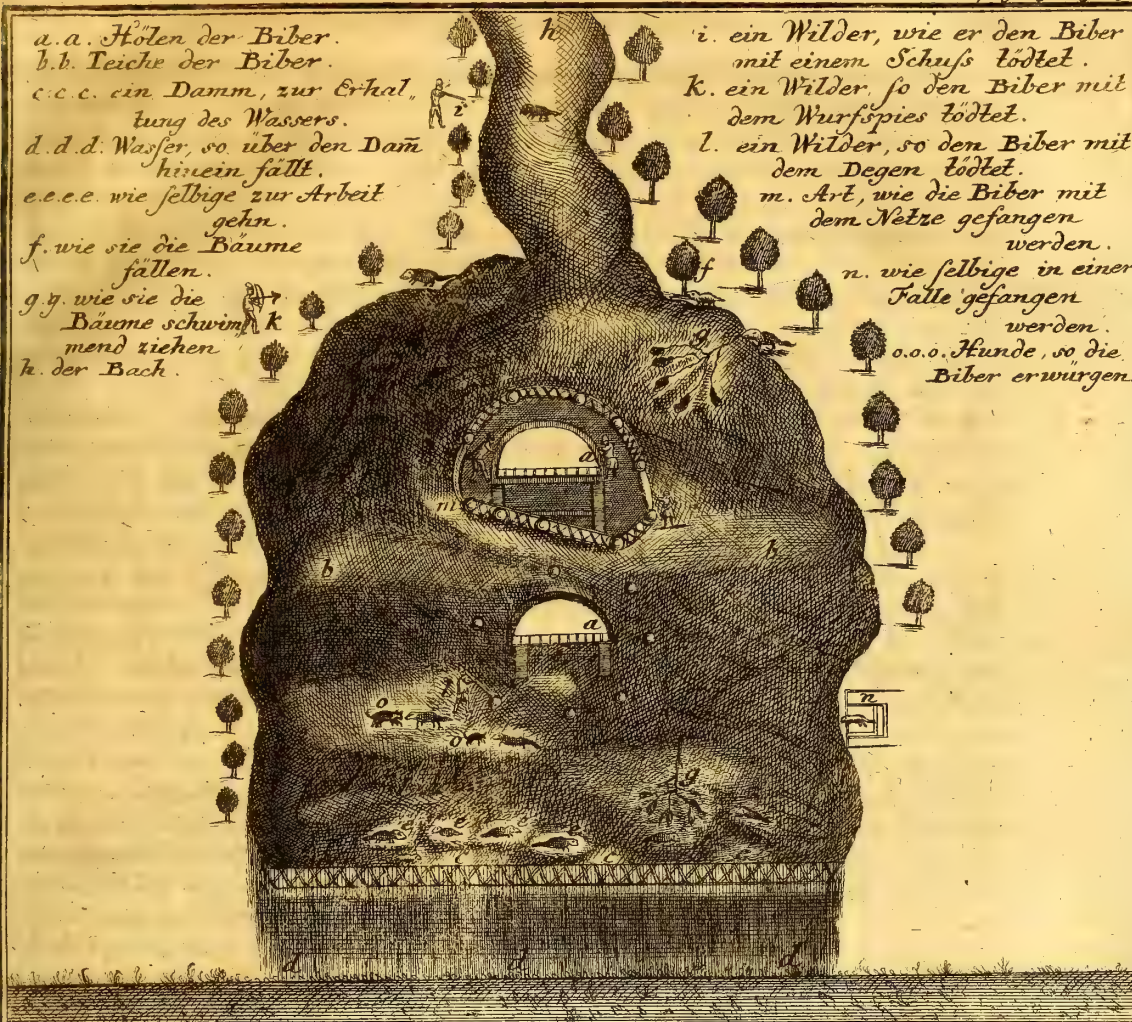 a. a. Hölen der Biber.
b. b. Teiche der Biber.
c. c. c. ein Damm, zur Erhal„
tung des Wassers.
d. d. d. Wasser, so über den Dam̄
hinein fällt.
e. e. e. e. wie selbige zur Arbeit
gehn.
f. wie sie die Bäume
fällen.
g. g. wie sie die
Bäume schwim„
mend ziehen
h. der Bach.
i. ein Wilder, wie er den Biber
mit einem Schuss tödtet.
k. ein Wilder, so den Biber mit
dem Wurfspies tödtet.
l. ein Wilder, so den Biber mit
dem Degen tödtet.
m. Art, wie die Biber mit
dem Netze gefangen
werden.
n. wie selbige in einer
Falle gefangen
werden.
o. o. o. Hunde, so die
Biber erwürgen
h
i
f
k
g
a
m
b
b
a
n
l
o
o
g
e
e
e
e
c
c
d
d
d